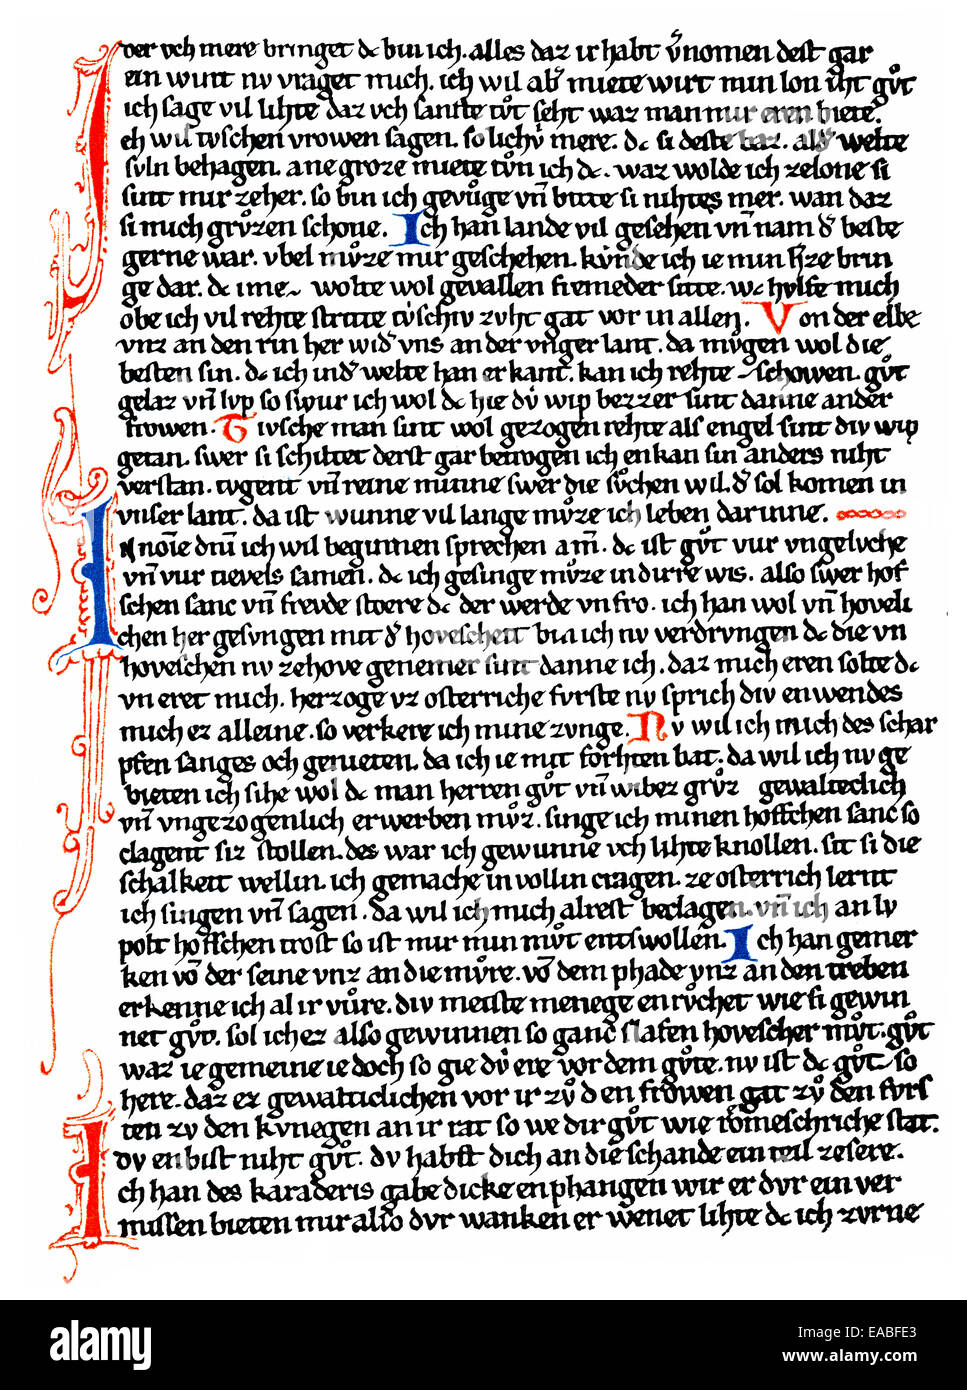 ver vch mere bringet dc bin ich. alles daz ir habt v̄nomen dest gar
ein wint nv vraget mich. ich wil ab' miete wirt min lon iht gůt
ich sage vil lihte daz vch sanfte tůt seht waz man mir eren biete.
ch wil tvschen vrowen sagen. solichv mere. dc si deste baz. al d' welte
svln behagen. ane groze miete tůn ich dc. waz wolde ich ze lone si
sint mir ze her. so bin ich gevůge vn̄ bitte si nihtes mer. wan daz
si mich grůzen schone. Ich han lande vil gesehen vn̄ nam d' beste
gerne war. vbel můze mir geschehen. kvnde ich ie min h'ze brin
ge dar. dc ime wolte wol gevallen fremeder sitte. wc hvlfe mich
obe ich vil rehte stritte tvschiv zvht gat vor in allen. Von der elbe
vnz an den rin her wid' vns an der vnger lant. da mvgen wol die
besten sin. dc ich in d' welte han erkant. kan ich rehte schowen. gůt
gelaz vn̄ lvp so swur ich wol dc hie dv wip bezzer sint danne ander
frowen. Tivsche man sint wol gezogen rehte als engel sint div wip
getan. swer si schiltet derst gar betrogen ich enkan sin anders niht
verstan. tvgent vn̄ reine minne swer die sůchen wil. d' sol komen in
vnser lant. da ist wunne vil lange můze ich leben dar inne.
In nomīe dnī ich wil beginnen sprechen am̄. dc ist gůt vur vngelvche
vn̄ vur tievels samen. dc ich gesinge můze in dirre wis. also swer hof
schen sanc vn̄ frevde stoere dc der werde vnfro. ich han wol vn̄ hoveli
chen her gesvngen mit d' hovescheit bin ich nv verdrvngen dc die vn
hoveschen nv ze hove genemer sint danne ich. daz mich eren solte dc
vneret mich. herzoge vz osterriche fvrste nv sprich div en wendes
mich ez alleine. so verkere ich mine zvnge. Nv wil ich mich des schar
pfen sanges och genieten. da ich ie mit forhten bat. da wil ich nv ge
bieten ich sihe wol dc man herren gůt vn̄ wibez grůz gewalteclich
vn̄ vngezogenlich erwerben můz. singe ich minen hoffchen sanc so
clagent siz stollen. des war ich gewunne vch lihte knollen. sit si die
schalkeit wellin. ich gemache in vollin cragen. ze osterrich lernt
ich singen vn̄ sagen. da wil ich mich alrest beclagen. vn̄ ich an lv
polt hoffchen trost so ist mir min můt entswollen. Ich han gemer
ken vō der seine vnz an die můre. vō dem phade vnz an den treben
erkenne ich al ir vůre. div meiste menege enrvchet wie si gewin
net gůt. sol ich ez also gewinnen so ganc slafen hovescher můt. gůt
waz ie gemeine iedoch so gie dv ere vor dem gůte. nv ist dc gůt so
here. daz ez gewalticlichen vor ir zů den frowen gat zů den fvrs
ten zv den kvnegen an ir rat so we dir gůt wie rômeschriche stat.
dv enbist niht gůt. dv habst dich an die schande ein teil ze sere.
Ich han des karaderis gabe dicke enphangen wir er dvr ein ver
missen bieten mir also dvr wanken er wenet lihte dc ich zvrne